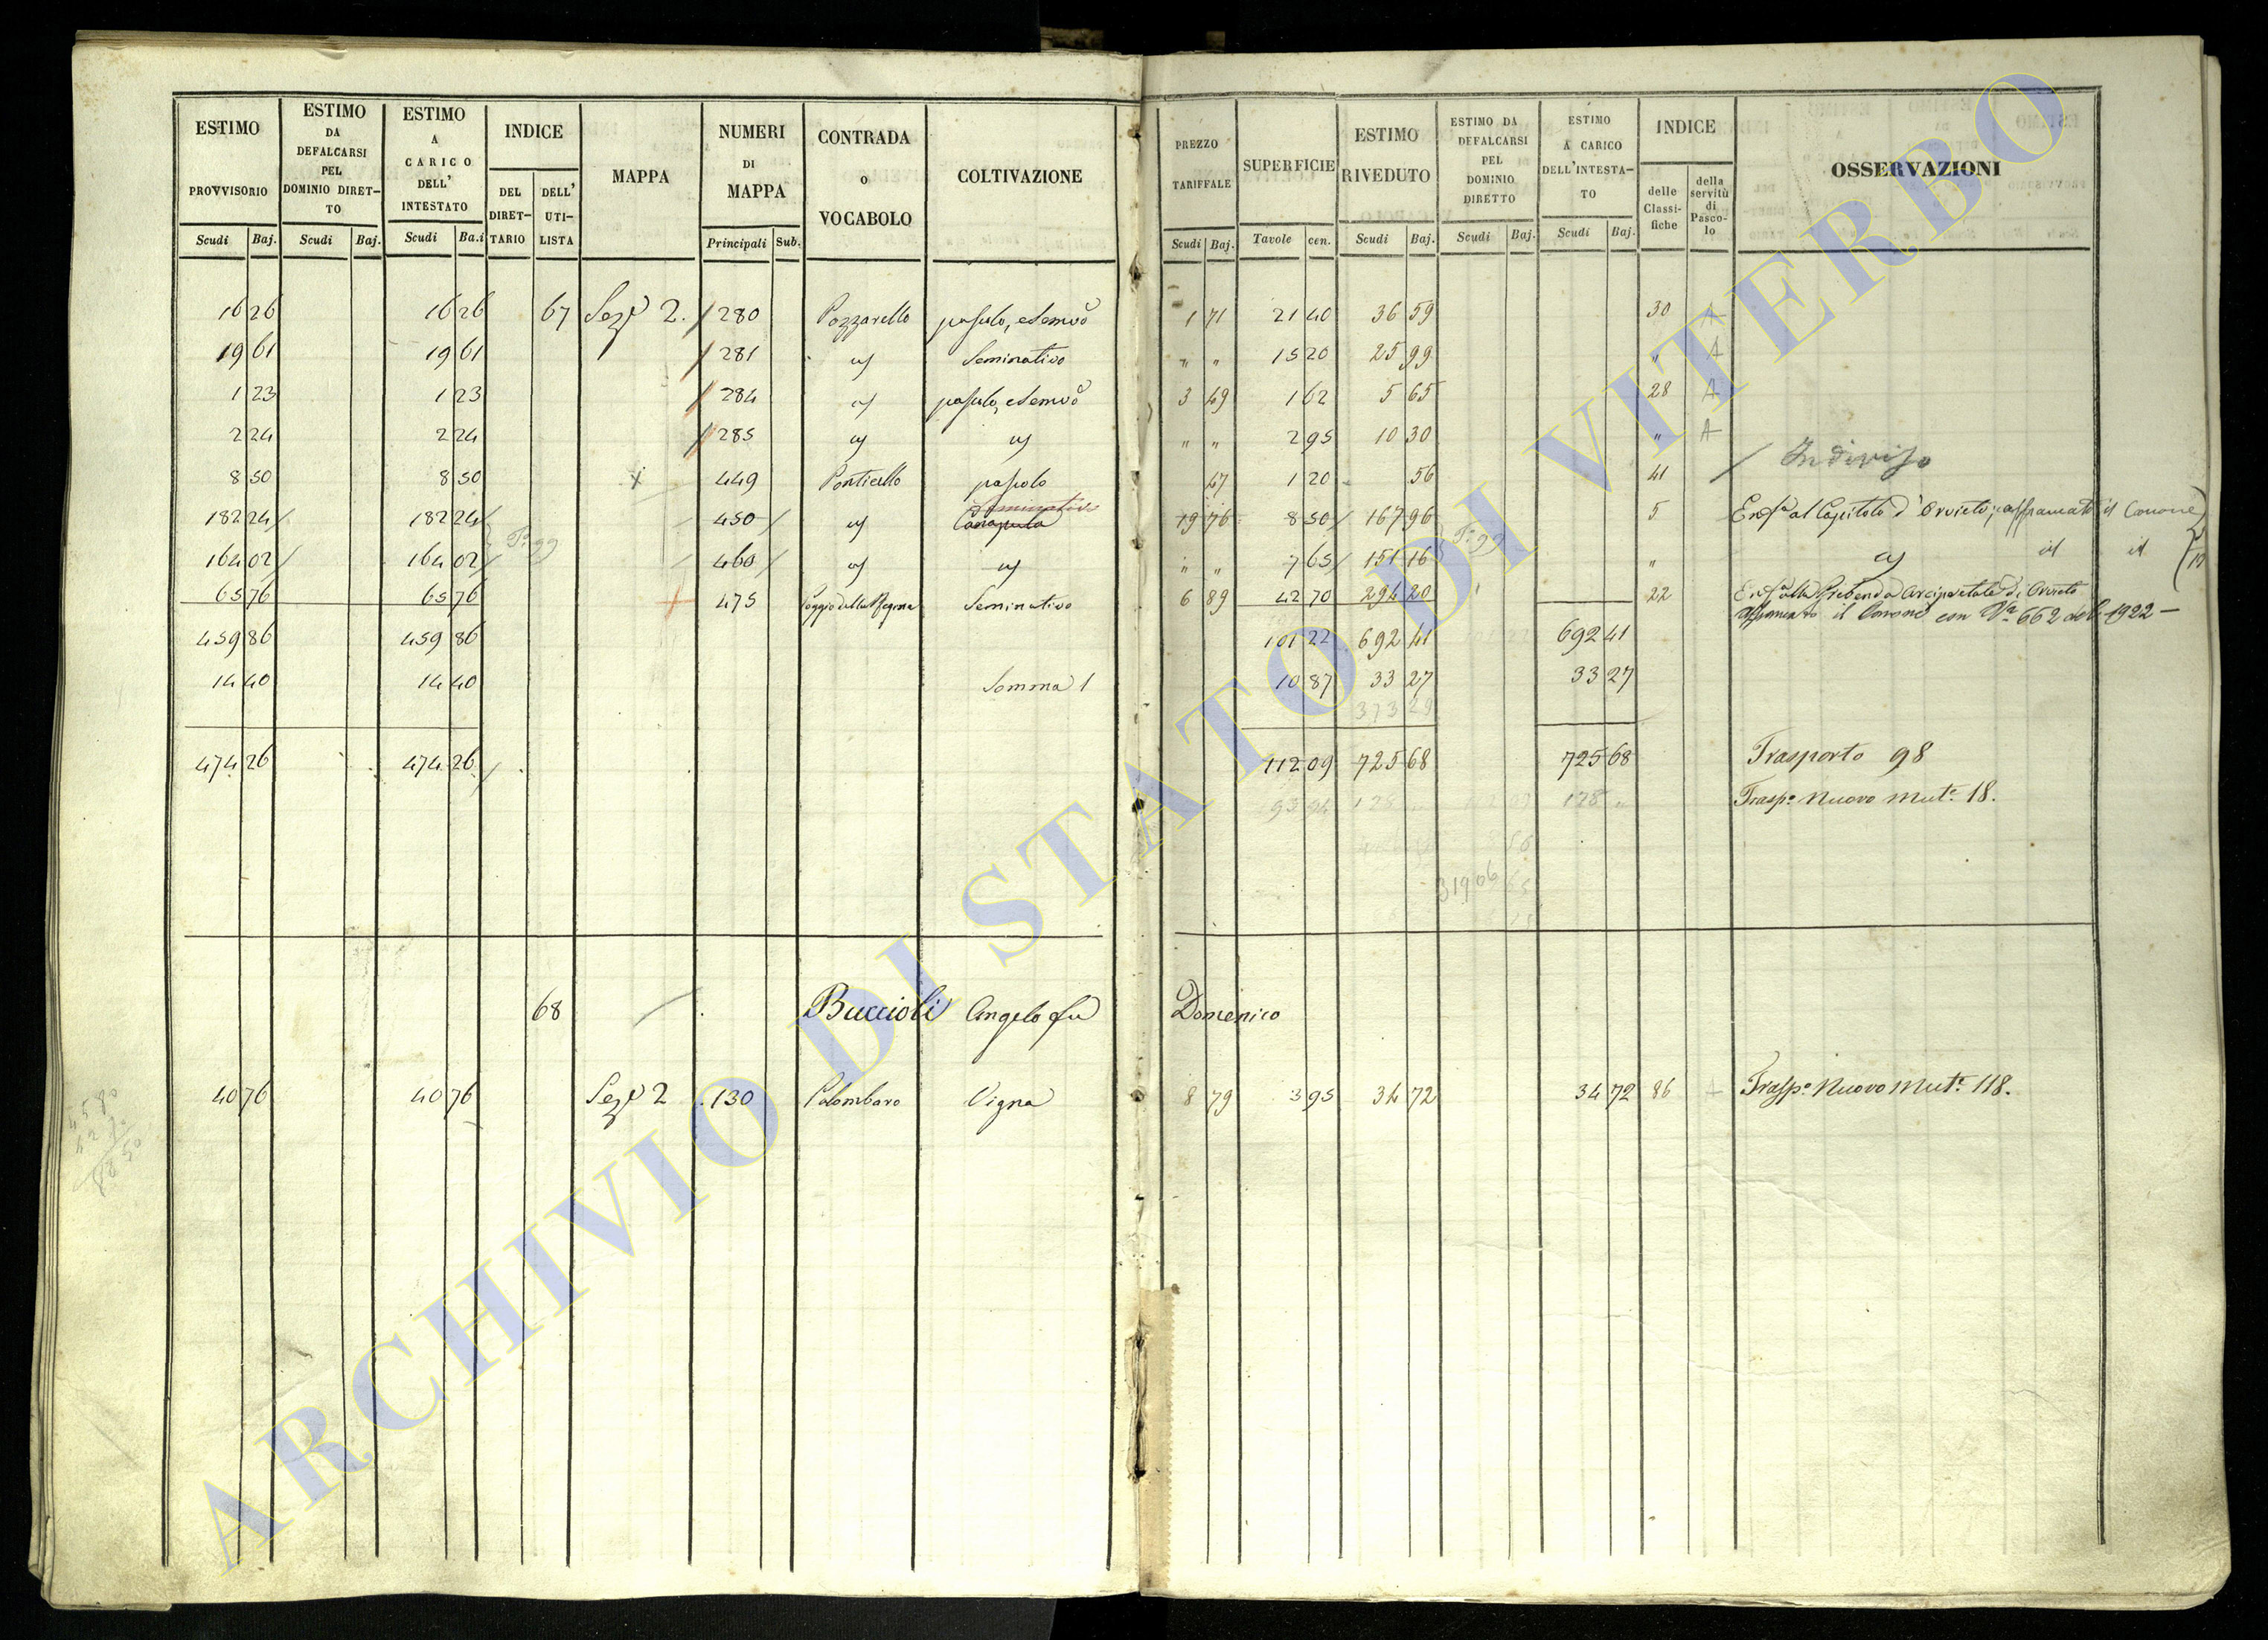 ESTIMO PROVVISORIO Scudi Baj.
ESTIMO DA DEFALCARSI PEL DOMINIO DIRET–TO Scudi Baj.
ESTIMO A CARICO DELL' INTESTATO Scudi Ba.i
INDICE DEL DIRET–TARIO DELL' UTI–LISTA
MAPPA
NUMERI DI MAPPA Principali Sub.
CONTRADA O VOCABOLO
COLTIVAZIONE
PREZZO TARIFFALE Scudi Baj.
SUPERFICIE Tavole cen.
ESTIMO RIVEDUTO Scudi Baj.
ESTIMO DA DEFALCARSI PEL DOMINIO DIRETTO Scudi Baj.
ESTIMO A CARICO DELL'INTESTA–TO Scudi Baj.
INDICE delle Classi–fiche della servitù di Pasco–lo
OSSERVAZIONI
16 26 16 26 67 Sez.e 2. 280 Pozzarello 1 71 21 40 36 59 30 A
19 61 19 61 281 Seminativo " " 15 20 25 99 " A
1 23 1 23 284 3 49 1 62 5 65 28 A
2 24 2 24 285 " " 2 95 10 30 " A
Indiviso
8 50 8 50 x 449 Ponticello pascolo 47 1 20 56 41
Seminativo
182 24 182 24 450 Canapula 19 76 8 50 167 96 5 Enf.a al Capitolo d'Orvieto, affrancato il Canone
164 02 164 02 460 " " 7 65 151 16 " id id
65 76 65 76 475 Poggio della Regina Seminativo 6 89 42 70 294 20 22 Enf.a alla Prebenda Arcipretale di Orvieto
Affrancato il Canone con V.a 662 del 1922 –
459 86 459 86 101 22 692 41 692 41
14 40 14 40 Somma 1 10 87 33 27 33 27
373 29
474 26 474 26 112 09 725 68 725 68 Trasporto 98
93 94 128 " 128 " Trasp.o Nuovo Mut.e 18.
319 06
68 Buccioli Angelo fu Domenico
40 76 40 76 Sez.e 2 130 Palombaro Vigna 8 79 3 95 34 72 34 72 86 A Trasp.o Nuovo Mut.e 118.
ARCHIVIO DI STATO DI VITERBO